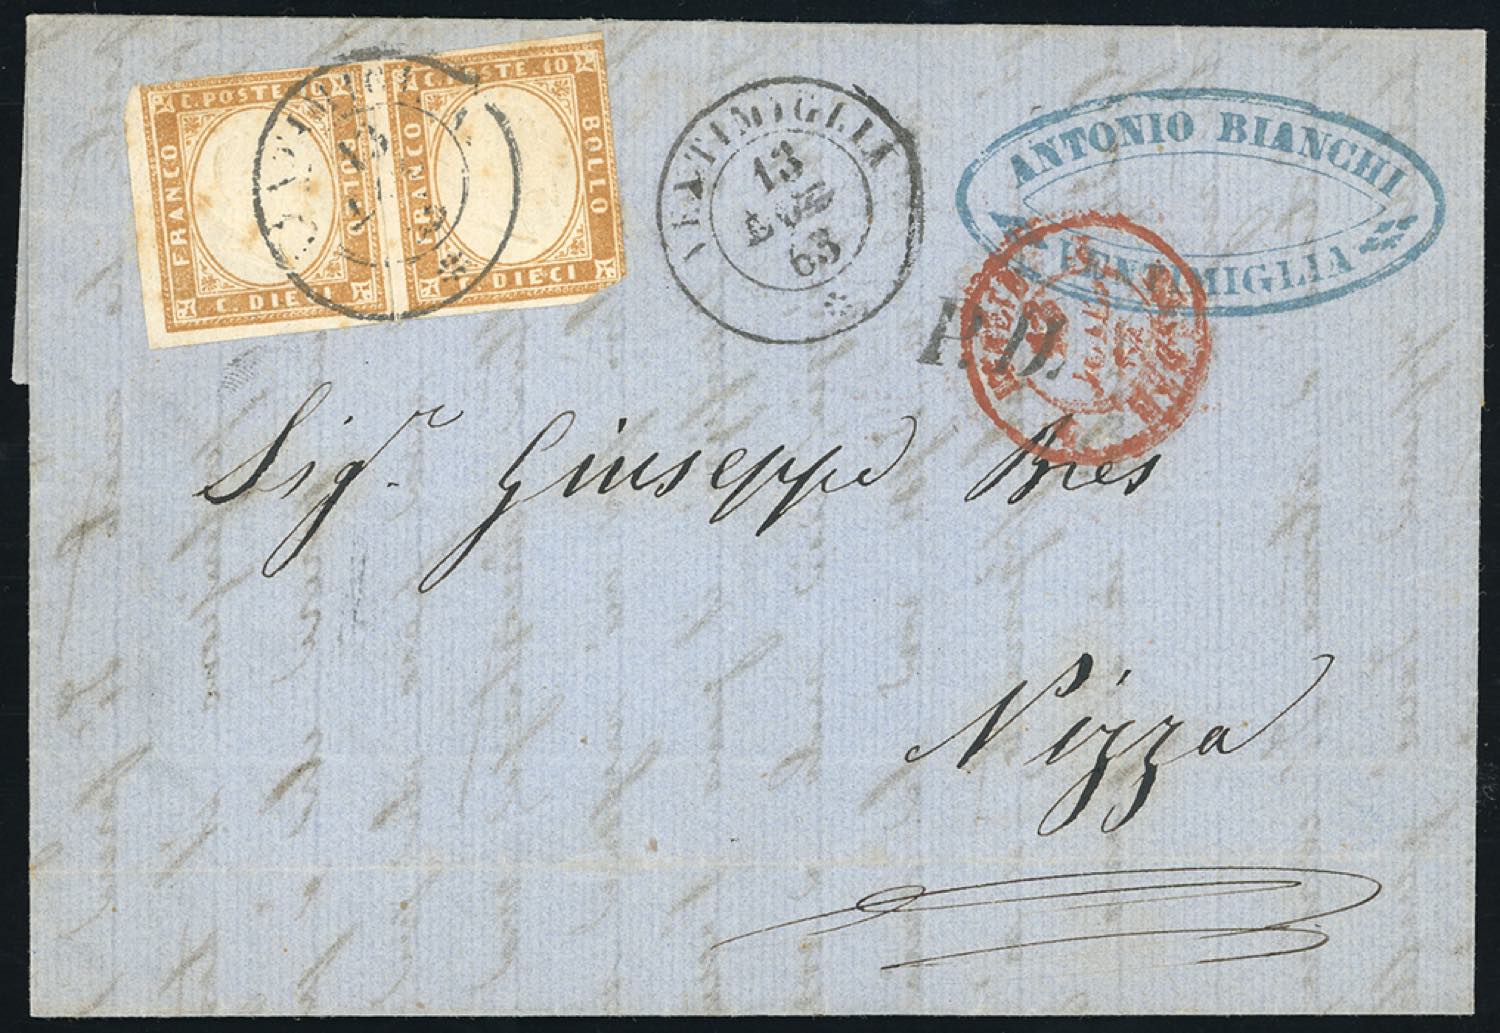 C. POSTE. 10
FRANCO
BOLLO
C. DIECI
C. POSTE. 10
FRANCO
BOLLO
C. DIECI
VENTIMIGLIA
13
63
ANTONIO BIANCHI
VENTIMIGLIA
P.D.
Sigr. Giuseppe Bres
Nizza